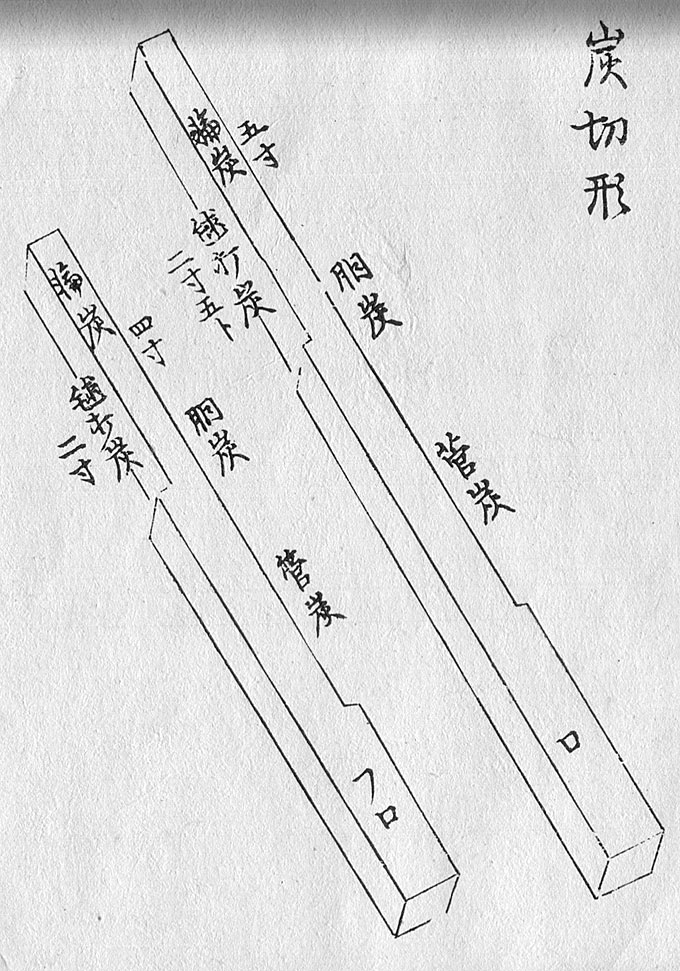 炭切形
五寸
輪炭
毬打炭
二寸五卜
胴炭
管炭
ロ
輪炭
四寸
毬打炭
二寸
胴炭
管炭
フロ